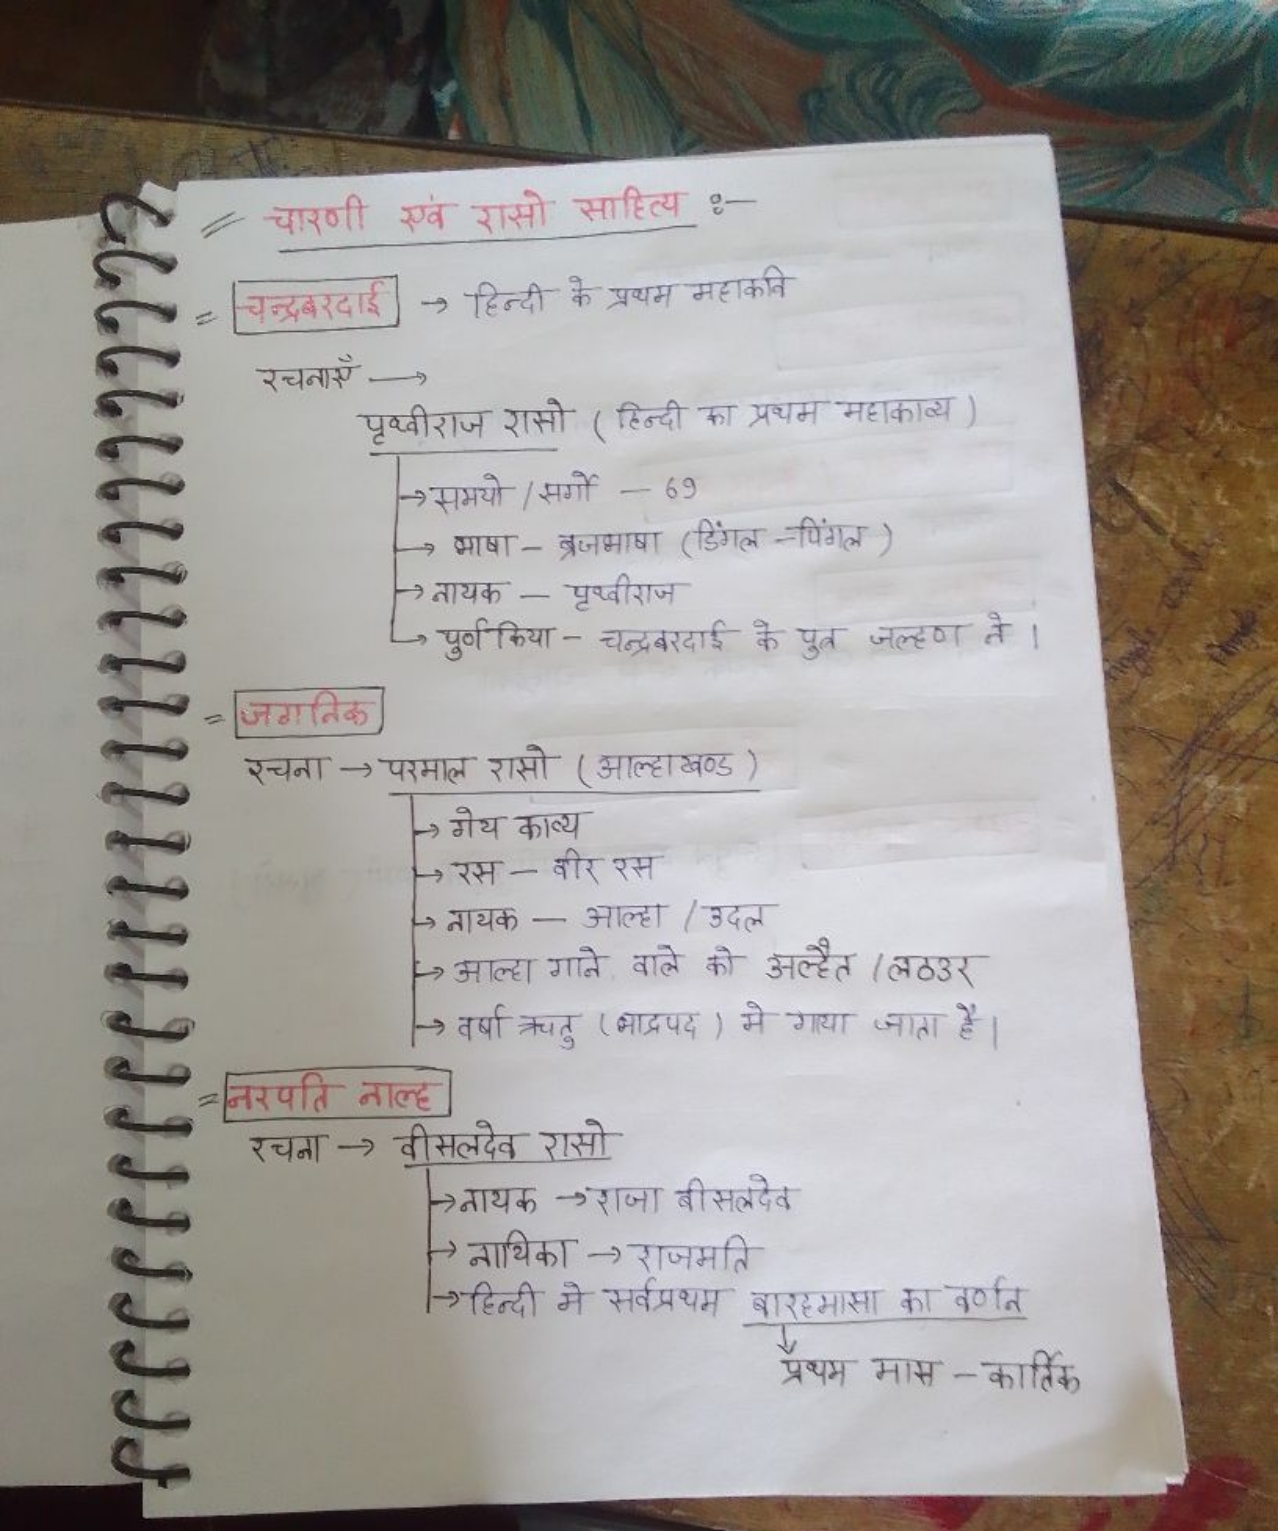 = चारणी एवं रासो साहित्य :-
= चन्द्रबरदाई → हिन्दी के प्रथम महाकवि
रचनाएँ →
पृथ्वीराज रासो ( हिन्दी का प्रथम महाकाव्य )
→ समयो / सर्गो - 69
→ भाषा - ब्रजभाषा (डिंगल -पिंगल )
→ नायक - पृथ्वीराज
→ पुर्ण किया - चन्द्रबरदाई के पुत्र जल्हण ने ।
= जगनिक
रचना → परमाल रासो ( आल्हाखण्ड )
→ गेय काव्य
→ रस - वीर रस
→ नायक - आल्हा / उदल
→ आल्हा गाने वाले को अल्हैत / लठउर
→ वर्षा ऋतु (भाद्रपद ) मे गाया जाता है ।
= नरपति नाल्ह
रचना → वीसलदेव रासो
→ नायक → राजा बीसलदेव
→ नायिका → राजमति
→ हिन्दी मे सर्वप्रथम बारहमासा का वर्णन
↓
प्रथम मास - कार्तिक